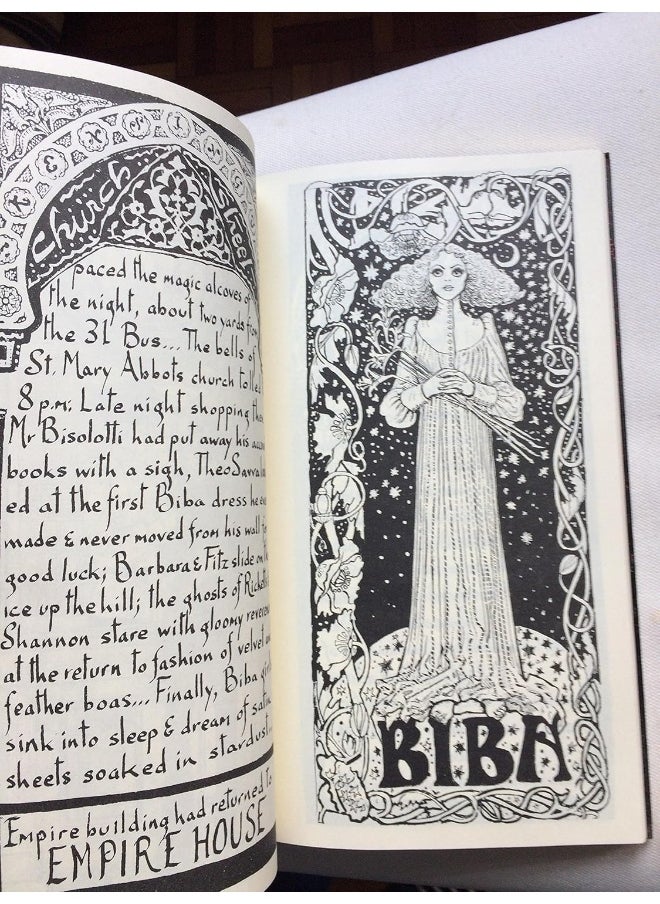 church
paced the magic alcoves of
the night, about two yards from
the 31 Bus... The bells of
St. Mary Abbots church tolled
8 p.m. Late night shopping
Mr Bisolotti had put away his
books with a sigh, Theo
ed at the first Biba dress he
made & never moved from his wall for
good luck; Barbara & Fitz slide on
ice up the hill; the ghosts of
Shannon stare with gloomy
at the return to fashion of velvet
feather boas... Finally, Biba
sink into sleep & dream of satin
sheets soaked in stardust...
Empire building had returned to
EMPIRE HOUSE
BIBA